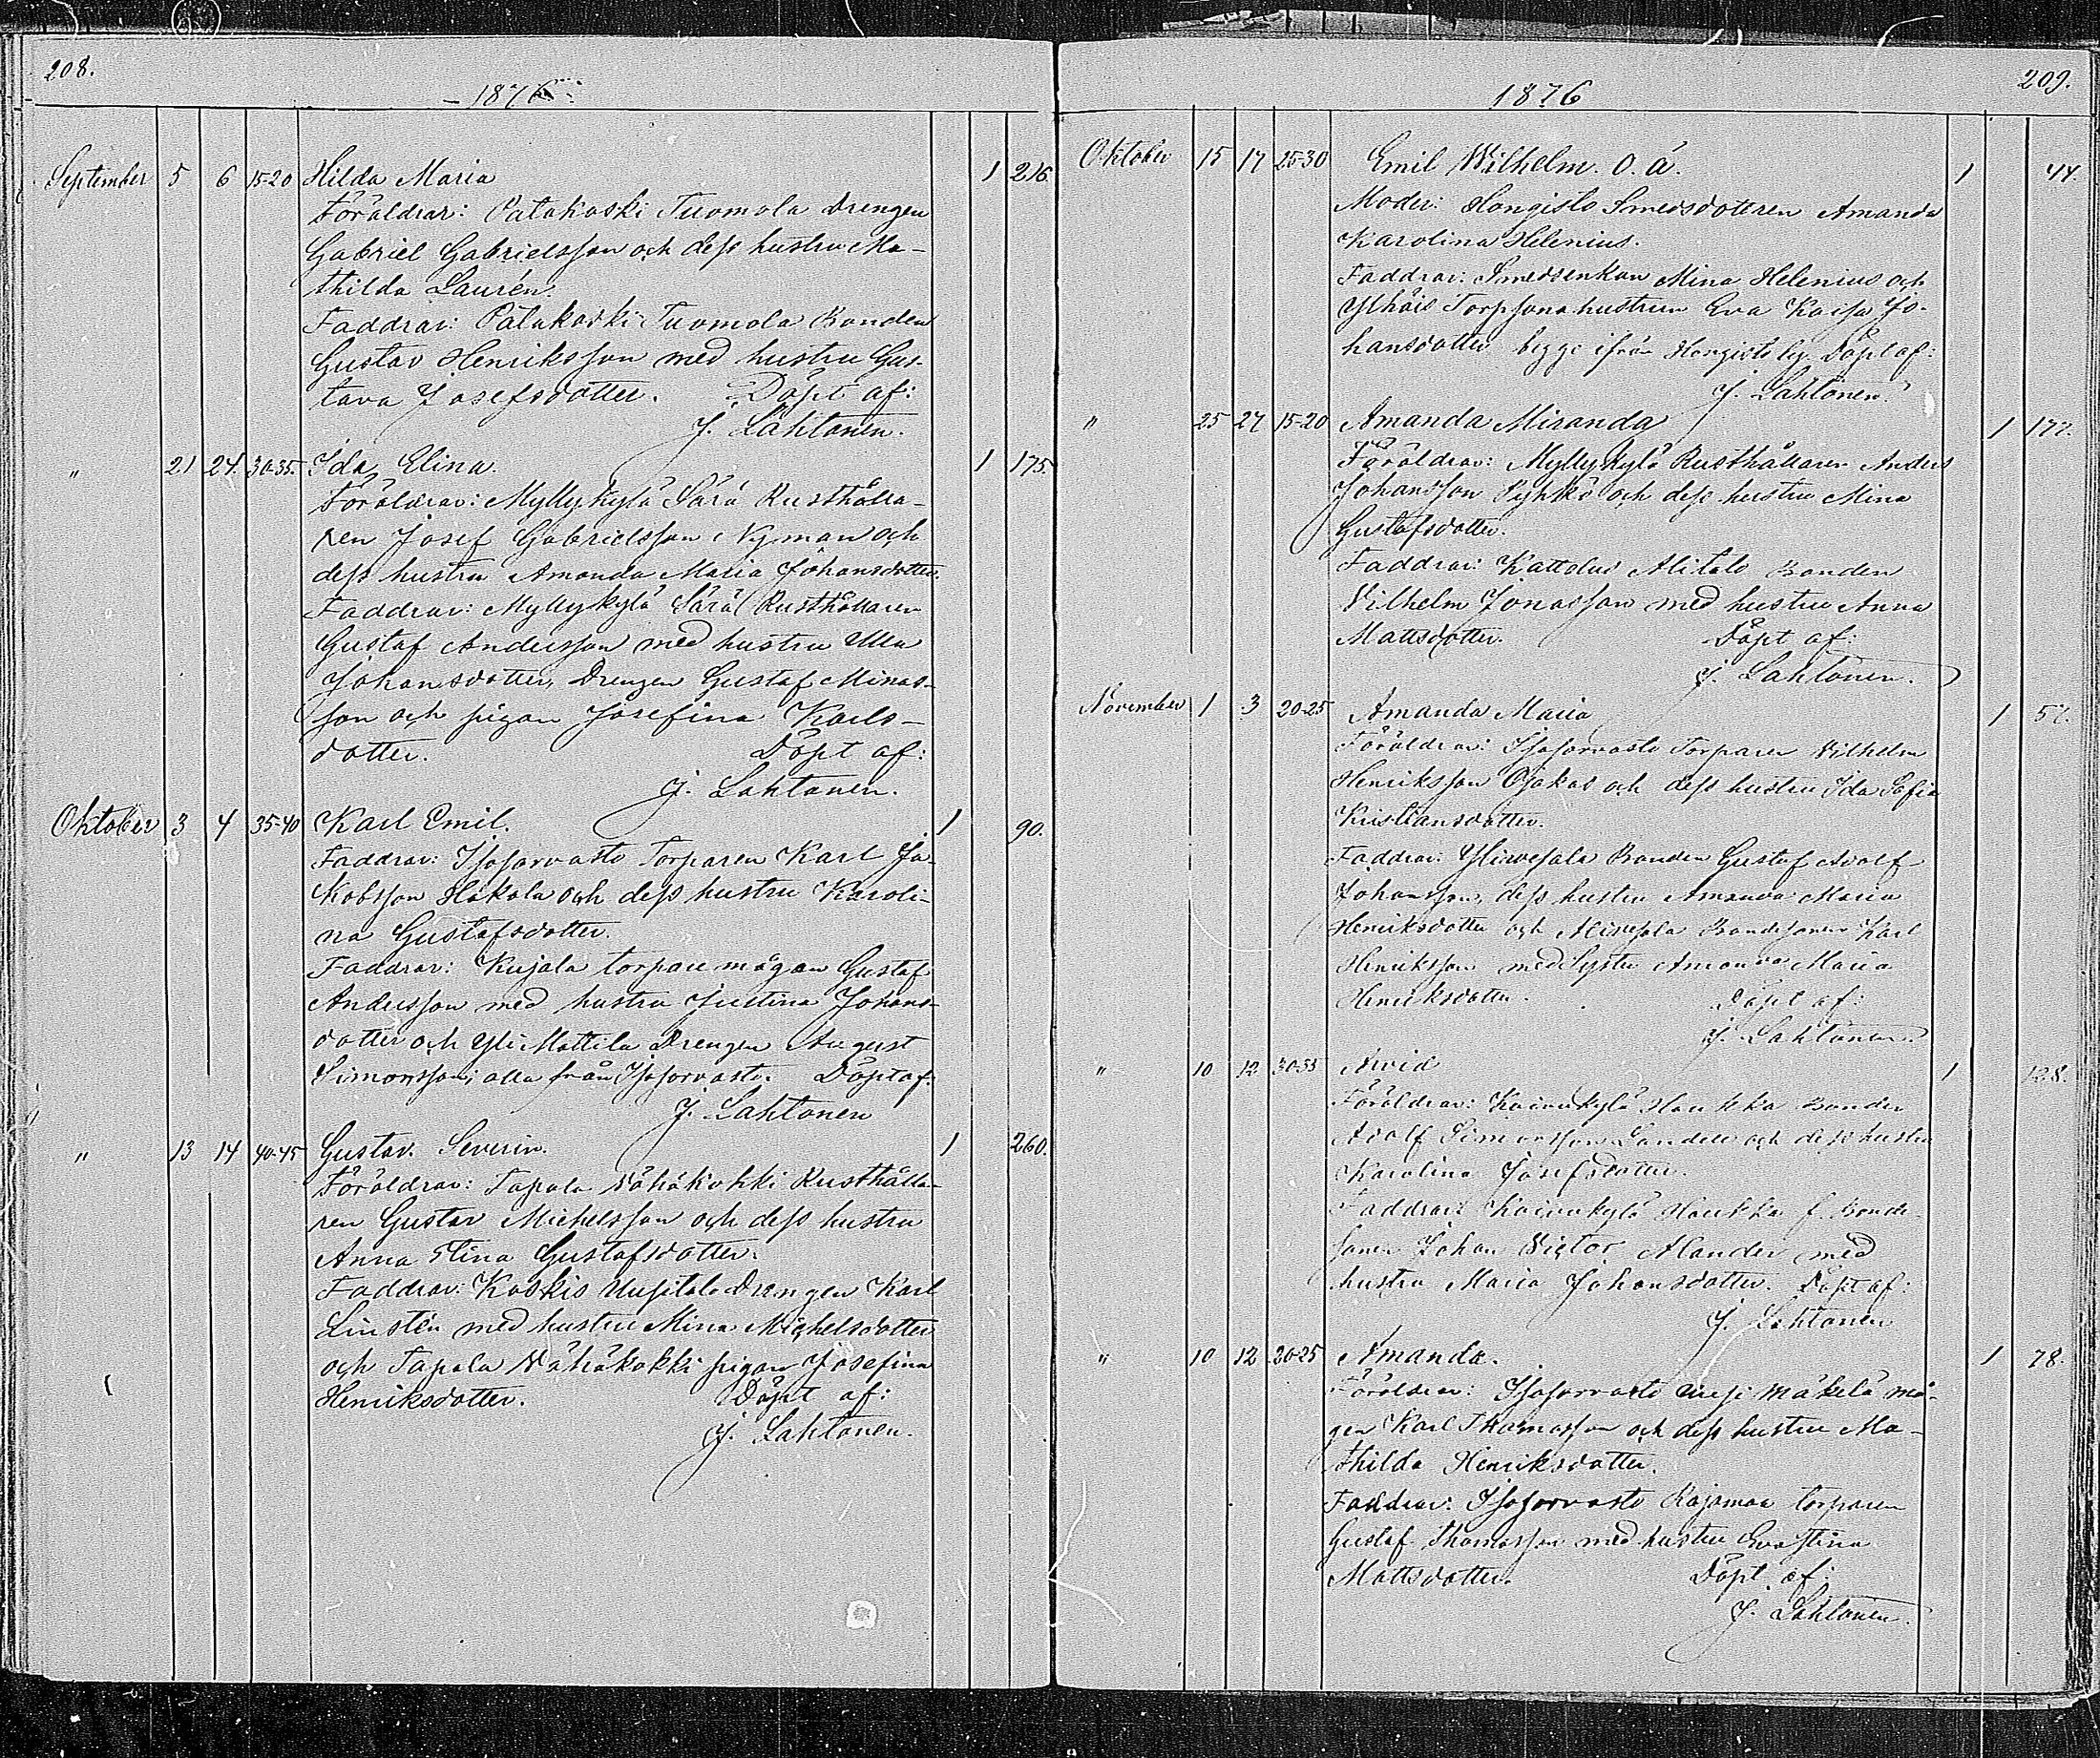 208.
1876
September 5 6 15-20 Hilda Maria 1 216.
Föräldrar: Palakoski Tuomola Drengen
Gabriel Gabrielsson och dess hustru Ma-
thilda Laurén.
Faddrar: Palakoski Tuomola Bonden
Gustav Henriksson med hustru Gus-
tava Josefsdotter. Döpt af:
J. Lahtonen.
" 21 24. 30-35. Ida Elina. 1 175.
Föräldrar: Myllykylä Särä Rusthålla-
ren Josef Gabrielsson Nyman och
dess hustru Amanda Maria Johansdotter.
Faddrar: Myllykylä Särä Rusthållaren
Gustaf Andersson med hustru Ulla
Johansdotter, Drengen Gustaf Minas-
son och pigan Josefina Karls-
dotter. Döpt af:
J. Lahtonen.
Oktober 3 4 35-40 Karl Emil. 1 90.
Faddrar: Isosorvasto Torparen Karl Ja-
kobsson Hakola och dess hustru Karoli-
na Gustafsdotter.
Faddrar: Kujala torpare mågen Gustaf
Andersson med hustru Justina Johans-
dotter och Yli Mattila Drengen August
Simonsson; alla från Isosorvasto. Döpt af:
J. Lahtonen
" 13 14 40-45 Gustav Severin. 1 260.
Föräldrar: Tapala Vähäkokki Rusthålla-
ren Gustav Michelsson och dess hustru
Anna Stina Gustafsdotter.
Faddrar: Koskis Uusitalo Drengen Karl
Linstén med hustru Mina Michelsdotter
och Tapala Vähäkokki pigan Josefina
Henriksdotter. Döpt af:
J. Lahtonen.
209.
1876
Oktober 15 17 25-30 Emil Wilhelm. O. ä. 1 44.
Moder: Hongisto Smedsdotteren Amanda
Karolina Helenius.
Faddrar: Smedsenkan Mina Helenius och
Torpsonahustrun Eva Kaisa Jo-
hansdotter begge ifrån Hongisto by. Döpt af:
J. Lahtonen.
" 25 27 15-20 Amanda Miranda 1 177.
Föräldrar: Myllykylä Rusthållaren Anders
Johansson Pyhkö och dess hustru Mina
Gustafsdotter.
Faddrar: Kattelus Alitalo Bonden
Vilhelm Jonasson med hustru Anna
Mattsdotter. Döpt af:
J. Lahtonen.
November 1 3 20-25 Amanda Maria 1 57.
Föräldrar: Isosorvasto Torparen Vilhelm
Henriksson Ojakas och dess hustru Ida Sofia
Kristiansdotter.
Faddrar: Bonden Gustaf Adolf
Johansson, dess hustru Amanda Maria
Henriksdotter och Bondesonen Karl
Henriksson med Syster Amanda Maria
Henriksdotter. Döpt af:
J. Lahtonen.
" 10 12 30-35 Arvid 1 128.
Föräldrar: Koivukylä Haukka Bonden
Adolf Simonsson Landell och dess hustru
Karolina Josefsdotter.
Faddrar: Koivukylä Haukka f. Bonde-
sonen Johan Victor Alander med
hustru Maria Johansdotter. Döpt af:
J. Lahtonen
" 10 12 20-25 Amanda. 1 78.
Föräldrar: Isosorvasto uusi Mäkelä må-
gen Karl Thomasson och dess hustru Ma-
thilda Henriksdotter.
Faddrar: Isosorvasto Rajamaa torparen
Gustaf Thomasson med hustru Eva Stina
Mattsdotter. Döpt af:
J. Lahtonen.